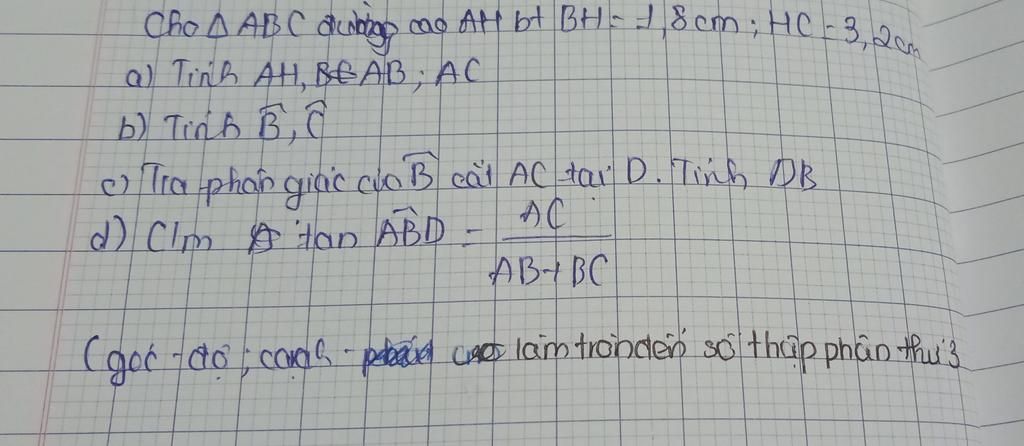 Cho Δ ABC đường cao AH bt BH = 1,8cm; HC = 3,2cm
a) Tính AH, AB; AC
b) Tính B̂, Ĉ
c) Tia phân giác của B̂ cắt AC tại D. Tính DB
d) C/m tan ABD = AC / AB + BC
(góc - độ; cạnh - làm tròn đến số thập phân thứ 3